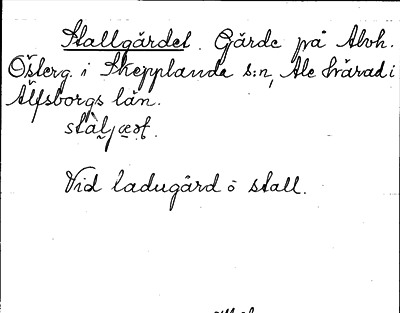 Stallgärdet. Gärde på Abvh.
Österg. i Skepplanda s:n, Ale härad i
Älfsborgs län.
Vid ladugård o stall.